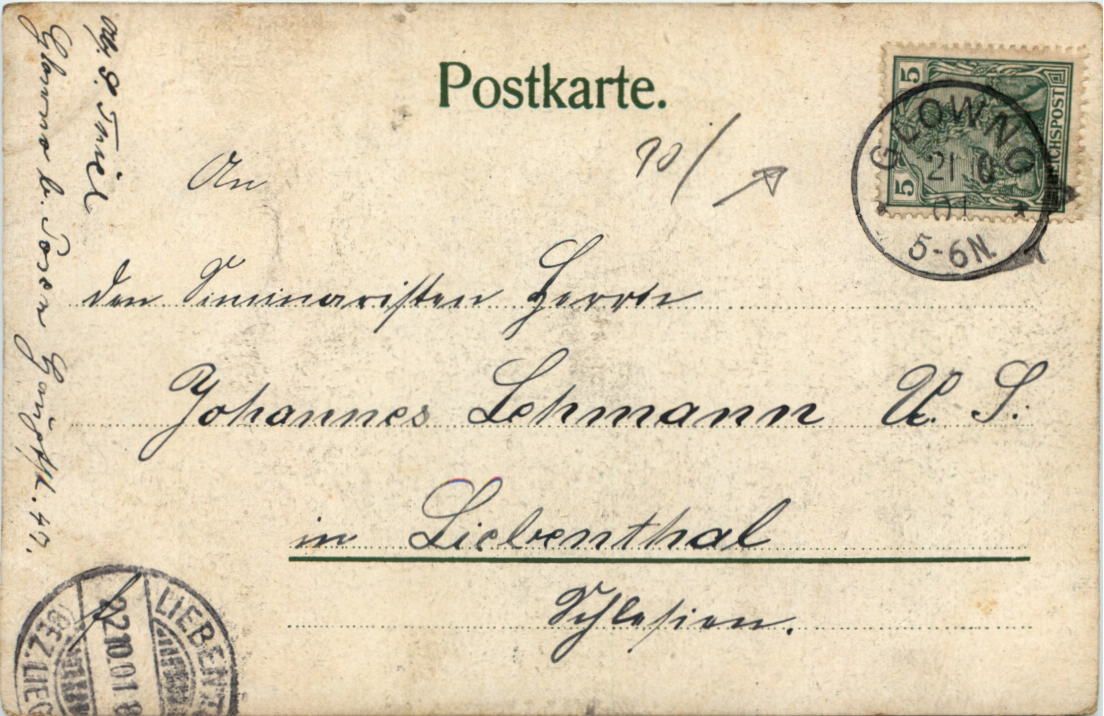 Postkarte.
An
den Seminaristen Herrn
Johannes Lehmann U. S.
in Liebenthal
Schlesien.
Glowno b. Posen Hauptstr. 47.
5
REICHSPOST
5
GLOWNO
21 10
01
5-6N.
LIEBENT
22.10.01 8
(BEZ. LIEG